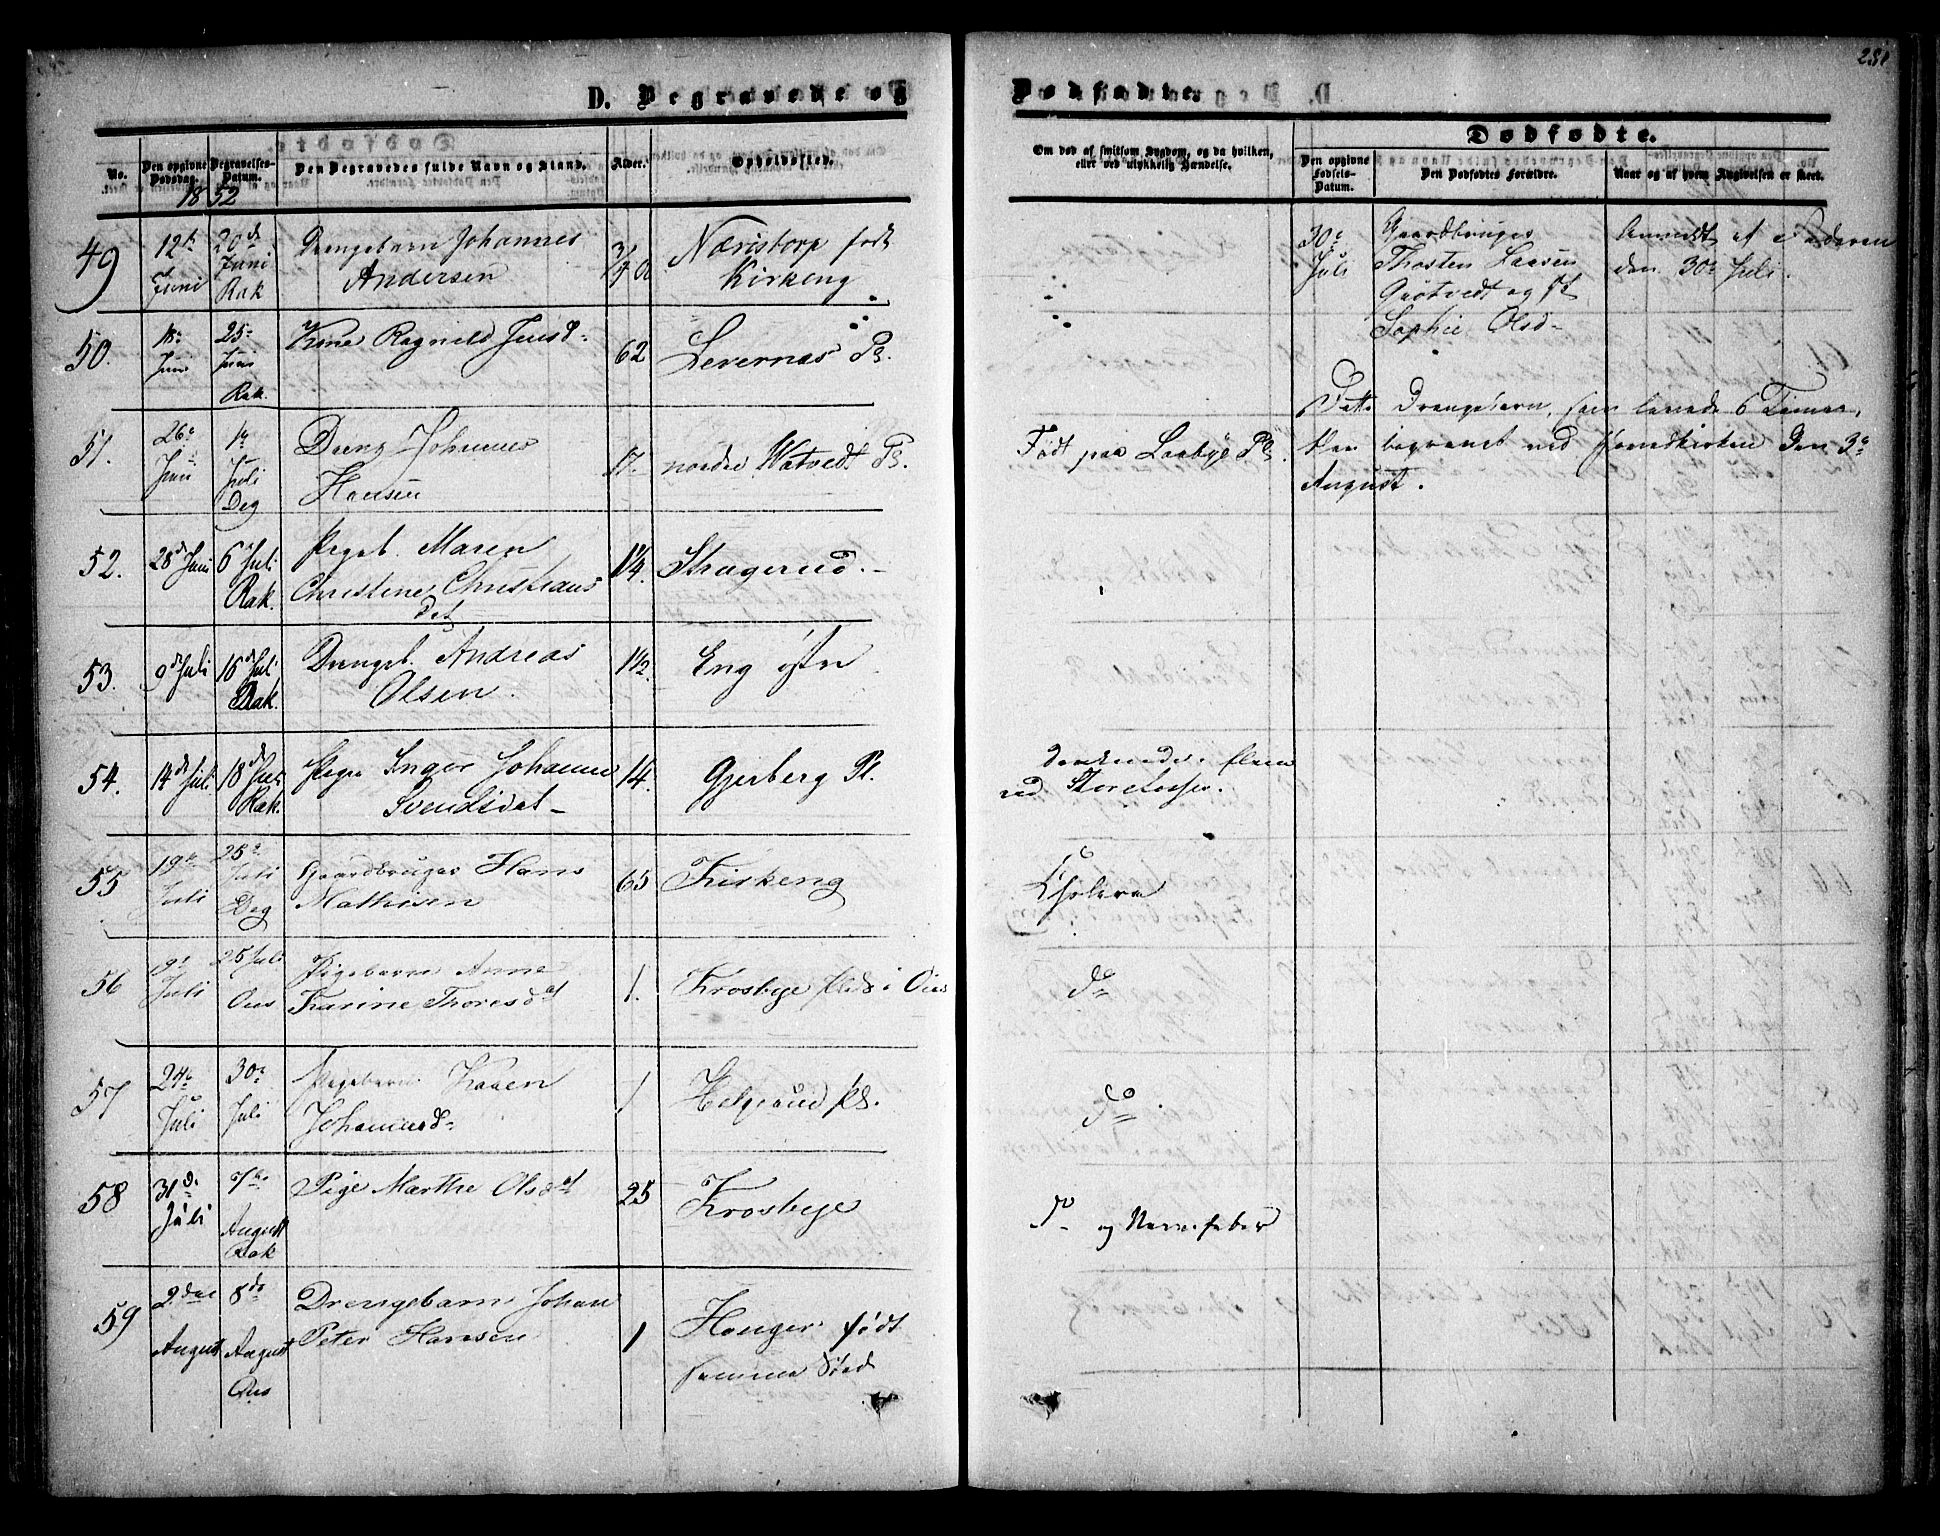 281
D. Begravede og
Dødfødte.
No.
Den opgivne Dødsdag.
Begravelses-Datum.
Den Begravedes fulde Navn og Stand.
Alder.
Opholdssted.
Om død af smitsom Sygdom, og da hvilken,
eller ved ulykkelig Hændelse.
Dødfødte.
Den opgivne Fødsels-Datum.
Den Dødfødtes Forældre.
Naar og af hvem Angivelsen er skeet.
1852
49
12te Juni
20de Juni Rak
Drengebarn Johannes
Andersen
Næristorp født
Kirkeng
50.
18 Juni
25 Juni Rak.
Kone Ragnild Jensd
62
Levernæs Pl.
51.
26 Juni
1te Juli Deg
Dreng Johannes
Hansen
17
nordre Watvedt Pl.
Født paa Laabye Pl.
52.
28de Juni
6 Juli Rak.
Pigeb. Maren
Christine Christians
dat
1 1/4
Stragerud.
53.
9de Juli
15de Juli Rak.
Drengeb. Andreas
Olsen.
1 1/2
Eng østre
54.
14de Juli
18de Juli Rak.
Pige Inger Johanne
Svendsdat
14.
Gjerberg Pl.
ved
55
19de Juli
25de Juli Deg
Gaardbruger Hans
Mathisen
65
Kirkeng
Cholera
56
19 Juli
25 Juli Ous
Pigebarn Anne
Karine Thoresdat
1.
Krosbye Plds i Ous
do
57
24 Juli
30 Juli
Pigebarn Karen
Johannesd
1
Helgerud Pls.
do
58
31de Juli
7de August Rak
Pige Marthe Olsdat
25
Krosbye
do og Nervefeber
59
2den August
8de August Ous
Drengebarn Johan
Peter Hansen
1
Houger født
samme Sted
30 Juli
Gaardbruger
Thosten Laasen
Grøtvedt og
Sophie Olsd
Anmeldt af Faderen
den 30 Juli.
Dette Drengebarn, som levede 6 Timer,
blev begravet ved Hovedkirken den 3
August.